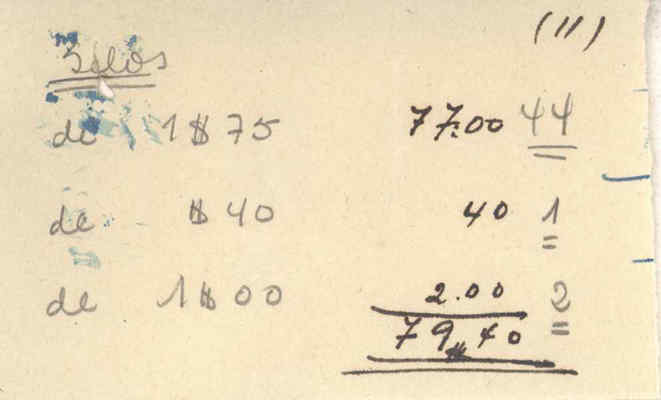 (11)
Selos
de 1$75 77.00 44
de $40 40 1
de 1$00 2.00 2
79$40